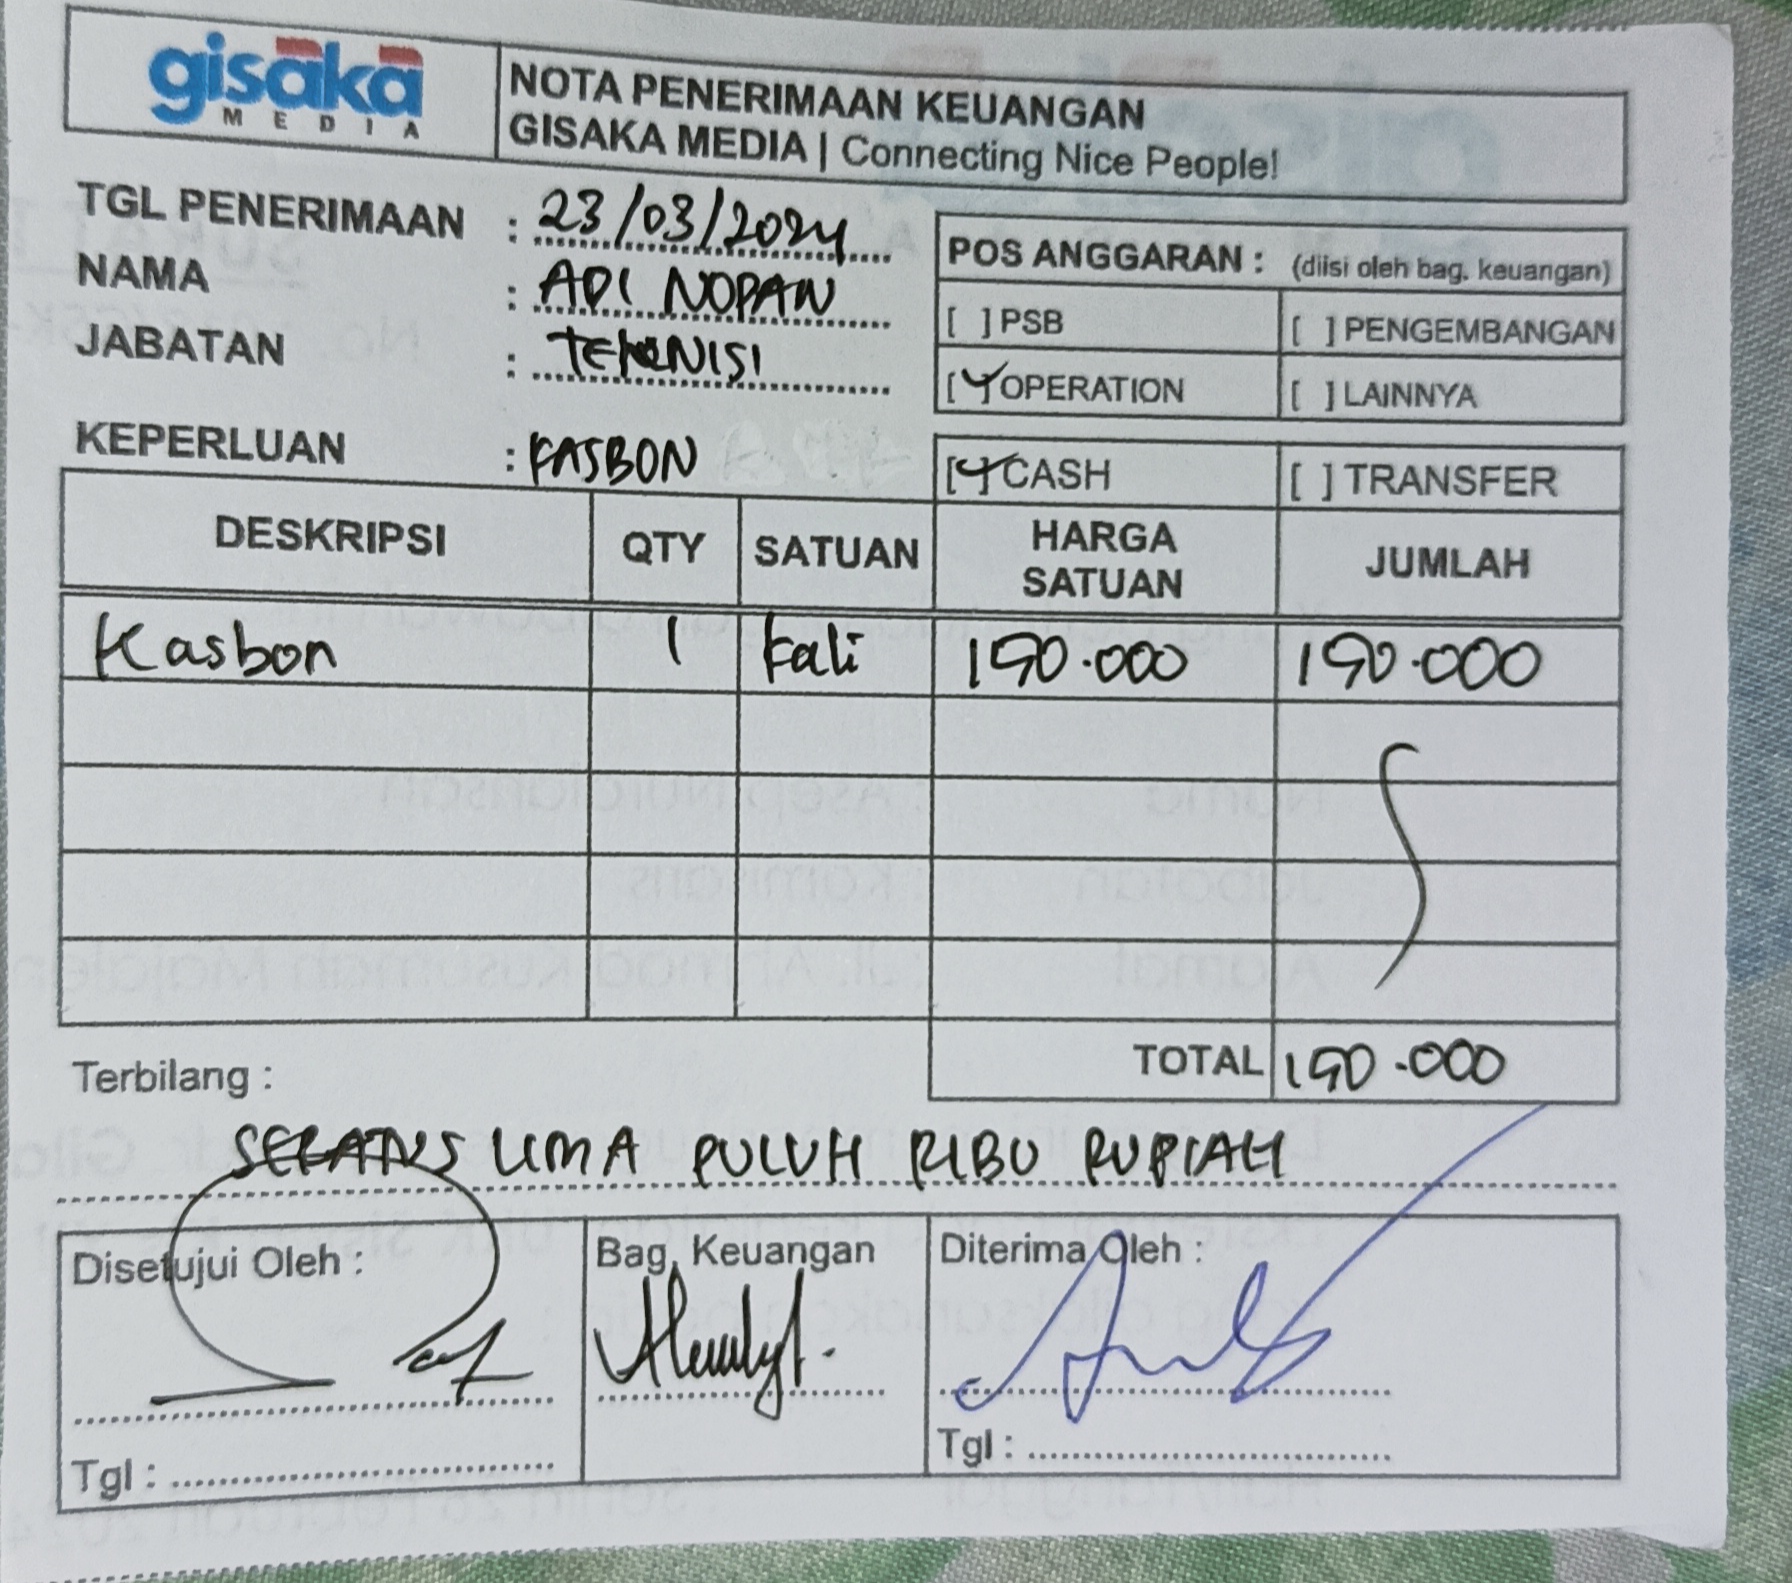 gisaka
MEDIA
NOTA PENERIMAAN KEUANGAN
GISAKA MEDIA | Connecting Nice People!
TGL PENERIMAAN : 23/03/2024
NAMA : ADI NOPAN
JABATAN : TEKNISI
KEPERLUAN : KASBON
POS ANGGARAN : (diisi oleh bag. keuangan)
[ ] PSB [ ] PENGEMBANGAN
[✓] OPERATION [ ] LAINNYA
[✓] CASH [ ] TRANSFER
DESKRIPSI QTY SATUAN HARGA SATUAN JUMLAH
Kasbon 1 kali 150.000 150.000
TOTAL 150.000
Terbilang :
SERATUS LIMA PULUH RIBU RUPIAH
Disetujui Oleh : Bag. Keuangan Diterima Oleh :
Tgl : Tgl :